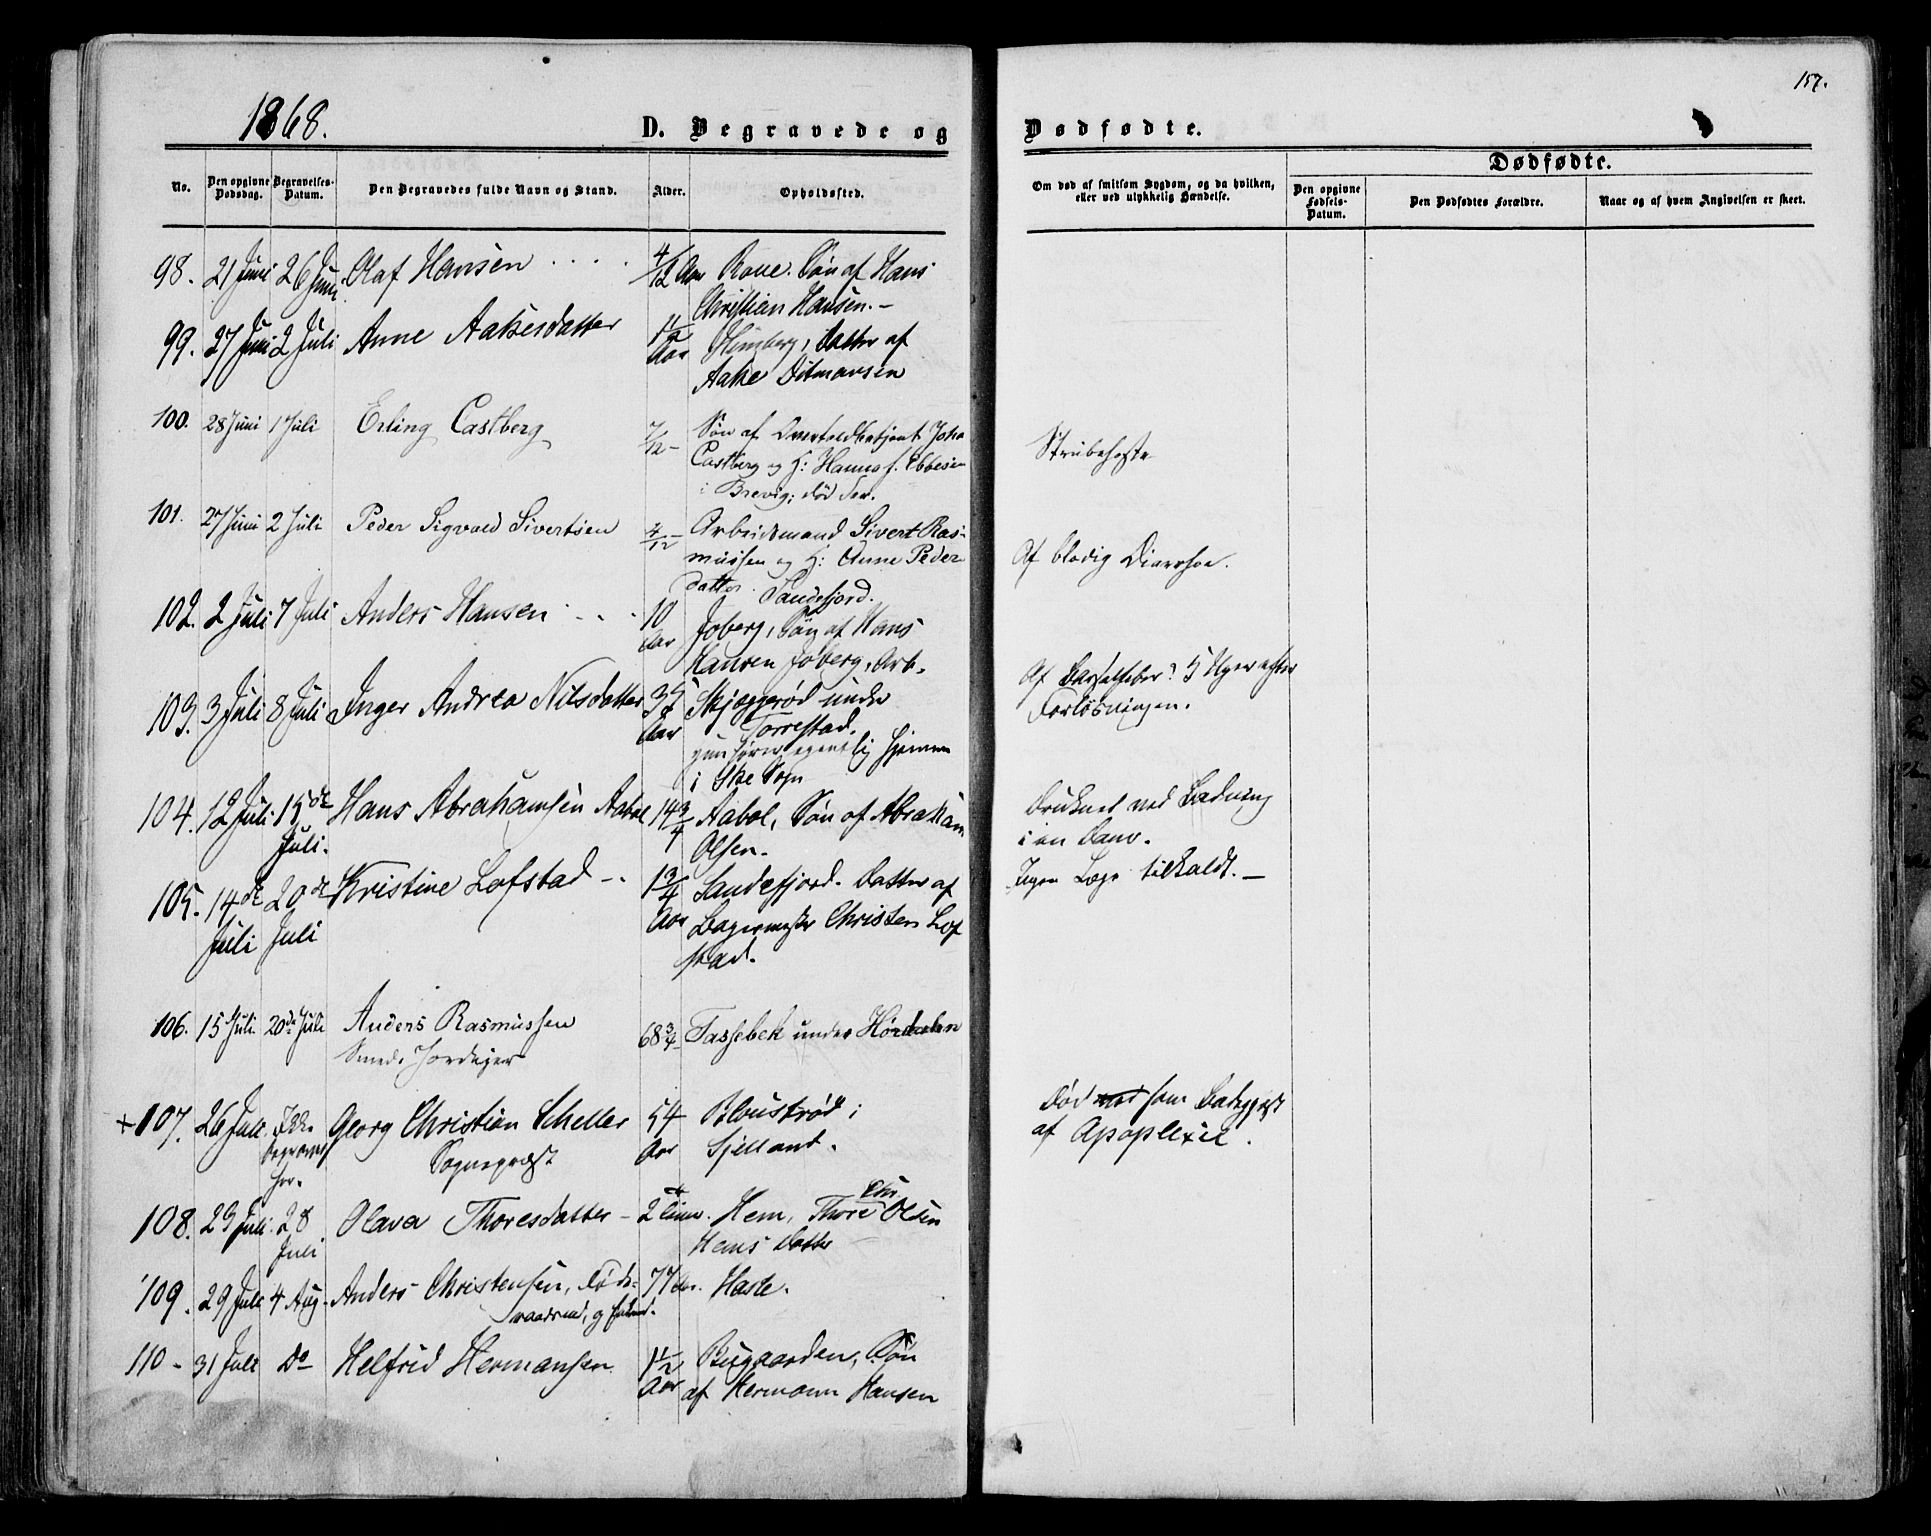 157.
1868.
D. Begravede og Dødfødte.
Dødfødte.
No.
Den opgivne Dødsdag.
Begravelses-Datum.
Den Begravedes fulde Navn og Stand.
Alder.
Opholdssted.
Om død af smitsom Sygdom, og da hvilken, eller ved ulykkelig Hændelse.
Den opgivne Fødsels-Datum.
Den Dødfødtes Forældre.
Naar og af hvem Angivelsen er skeet.
98. 21 Juni 26 Juni Olaf Hansen 4/12 Aar Roue. Søn af Hans
Christian Hansen.-
99. 27 Juni 2 Juli Anne Aakesdatter 1 1/2 Aar Himberg, Datter af
Aake Ditmansen
100. 28 Juni 1 Juli Erling Castberg 7/12 - Søn af Overtoldbetjent Joha
Castberg og H: Hanna f. Ebbesen
i Brevig; død der.
Strubehoste
101. 27 Juni 2 Juli Peder Sigvald Sivertsen 4/12 - Arbeidsmand Sivert Ras-
mussen og H: Anne Peders
datter Sandefjord.
Af blodig Diarrhoe.
102. 2 Juli 7 Juli Anders Hansen 10 Aar Joberg, Søn af Hans
Hansen Joberg, Arb.
103. 3 Juli 8 Juli Inger Andrea Nilsdatter Aar Skjæggerød under
Torrestad.
egentlig hjemme
i Sogn
Af Barselfeber? 5 Uger efter
Forløsningen.
104. 12 Juli 15de Juli. Hans Abrahamsen Aabøl 14 3/4 Aabøl, Søn af Abraham
Olsen.
Druknet ved Badning
i en Dam.
105. 14de Juli 20de Juli Kristine Lofstad 1 3/4 Aar Sandefjord. Datter af
Bagermester Christen Lof
stad.
Ingen Læge tilkaldt. -
106. 15 Juli. 20de Juli Anders Rasmussen 68 3/4 Tassebek under Hørdalen
Smed. Jordeier
+107. 26 Juli Ikke begravet her. Georg Christian Scheller 54 Aar Bloustrød i
Sognepræst
Sjelland.
Død som Badegjest
af Apoplexie.
108. 23 Juli. 28 Juli Olava Thoresdatter - 2 Hem, Thore Chr. Olsen
Hems Datter
109. 29 Juli 4 Aug. Anders Christensen, Føde-
77 Aar. Hasle.
110 - 31 Juli Do Helfrid Hermansen 1 1/2 Aar Bugaarden, Søn
af Hermann Hansen